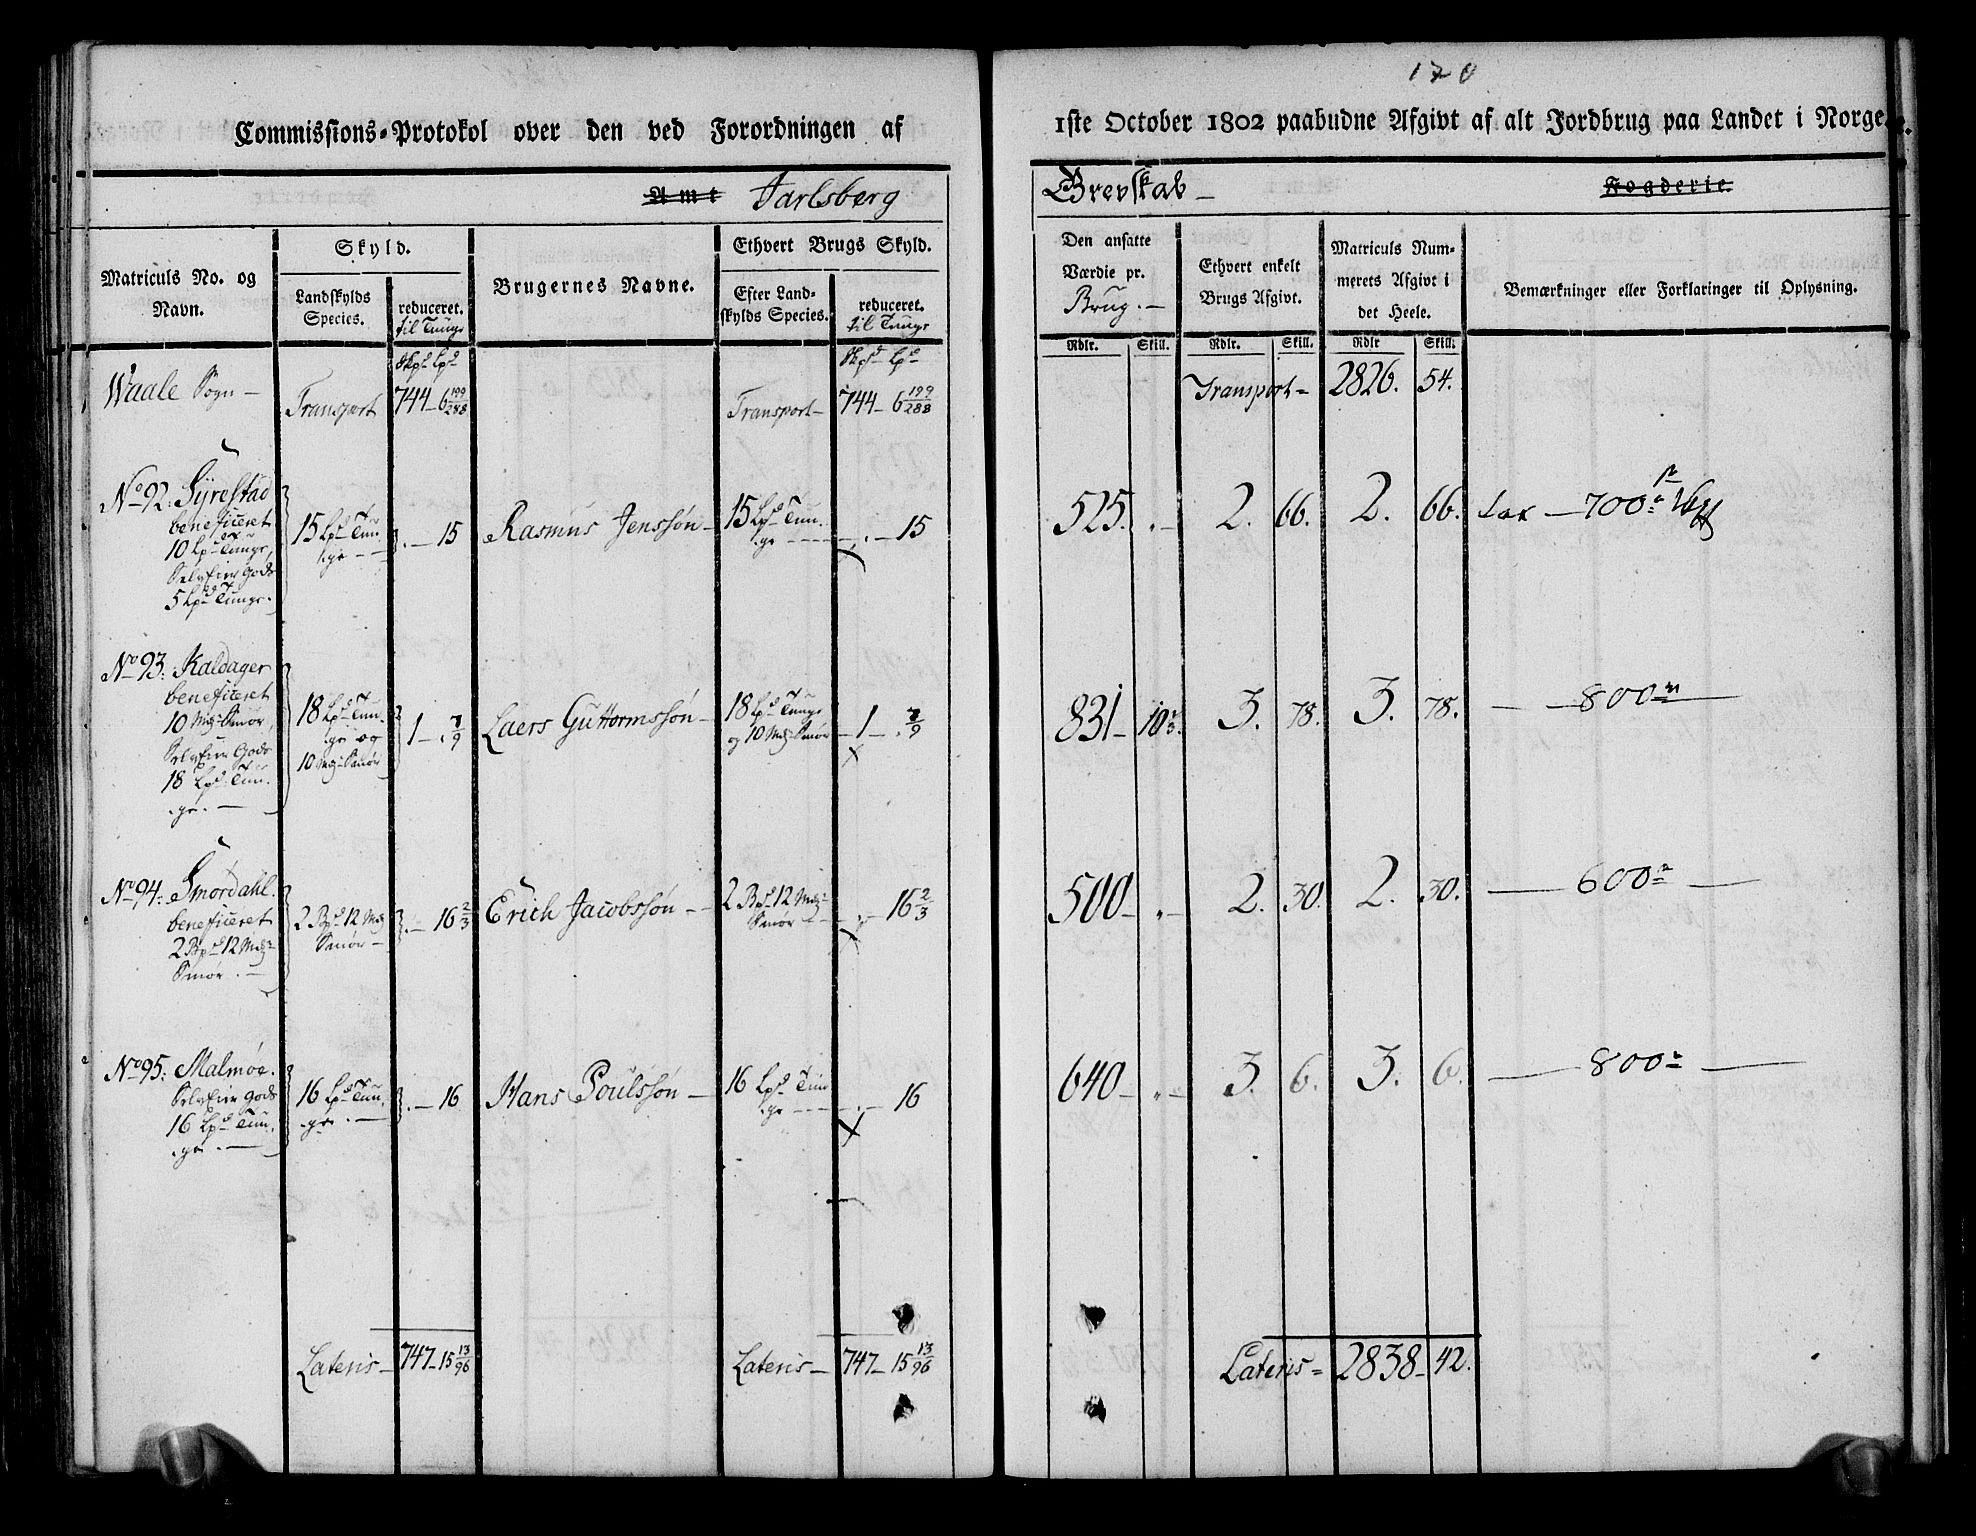 170
Commissions-Protokol over den ved Forordningen af
1ste October 1802 paabudne Afgivt af alt Jordbrug paa Landet i Norge.
Amt Jarlsberg
Grevskab
Fogderie.
Matriculs No. og Navn.
Skyld.
Landskylds Species.
reduceret. til Tunge
Brugernes Navne.
Ethvert Brugs Skyld.
Efter Landskylds Species.
reduceret. til Tunge
Den ansatte Værdie pr. Brug.
Ethvert enkelt Brugs Afgivt.
Matriculs Nummerets Afgivt i det Heele.
Bemærkninger eller Forklaringer til Oplysning.
Rdlr. Skill. Rdlr. Skill. Rdlr Skill.
Skpd Lpd Skpd Lpd
Waale Sogn - Transport 744 - 6 199/288 Transport - 744 - 6 199/288 Transport - 2826. 54.
No 92: Syrestad
beneficeret
10 Lpd Tunge,
Selveier Gods
5 Lpd Tunge.
15 Lpd Tun-
ge
15
Rasmus Jenssøn
15 Lpd Tun-
ge
15
525. 2. 66. 2. 66. tax - 700
No 93: Kaldager
beneficeret
10 Mk Smør,
Selveier Gods
18 Lpd Tun-
ge.
18 Lpd Tun-
ge og
10 Mk Smør
1 - 7/9
Laers Guttormssøn
18 Lpd Tunge
og 10 Mk Smør
1 - 7/9
831 - 10 2/3. 3. 78. 3. 78. - 800
No 94: Smørdahl.
beneficeret
2 Bpd 12 Mk
Smør.
2 Bpd 12 Mk
Smør
16 2/3
Erich Jacobssøn
2 Bpd 12 Mk
Smør
16 2/3
500 - 2. 30. 2. 30. - 600
No 95: Malmøe.
Selveier Gods
16 Lpd Tun-
ge.
16 Lpd Tun-
ge.
16
Hans Poulssøn
16 Lpd Tun-
ge
16
640 - 3. 6. 3. 6. - 800
Lateris - 747 - 15 13/96 Lateris - 747 - 15 13/96 Lateris = 2838 - 42.